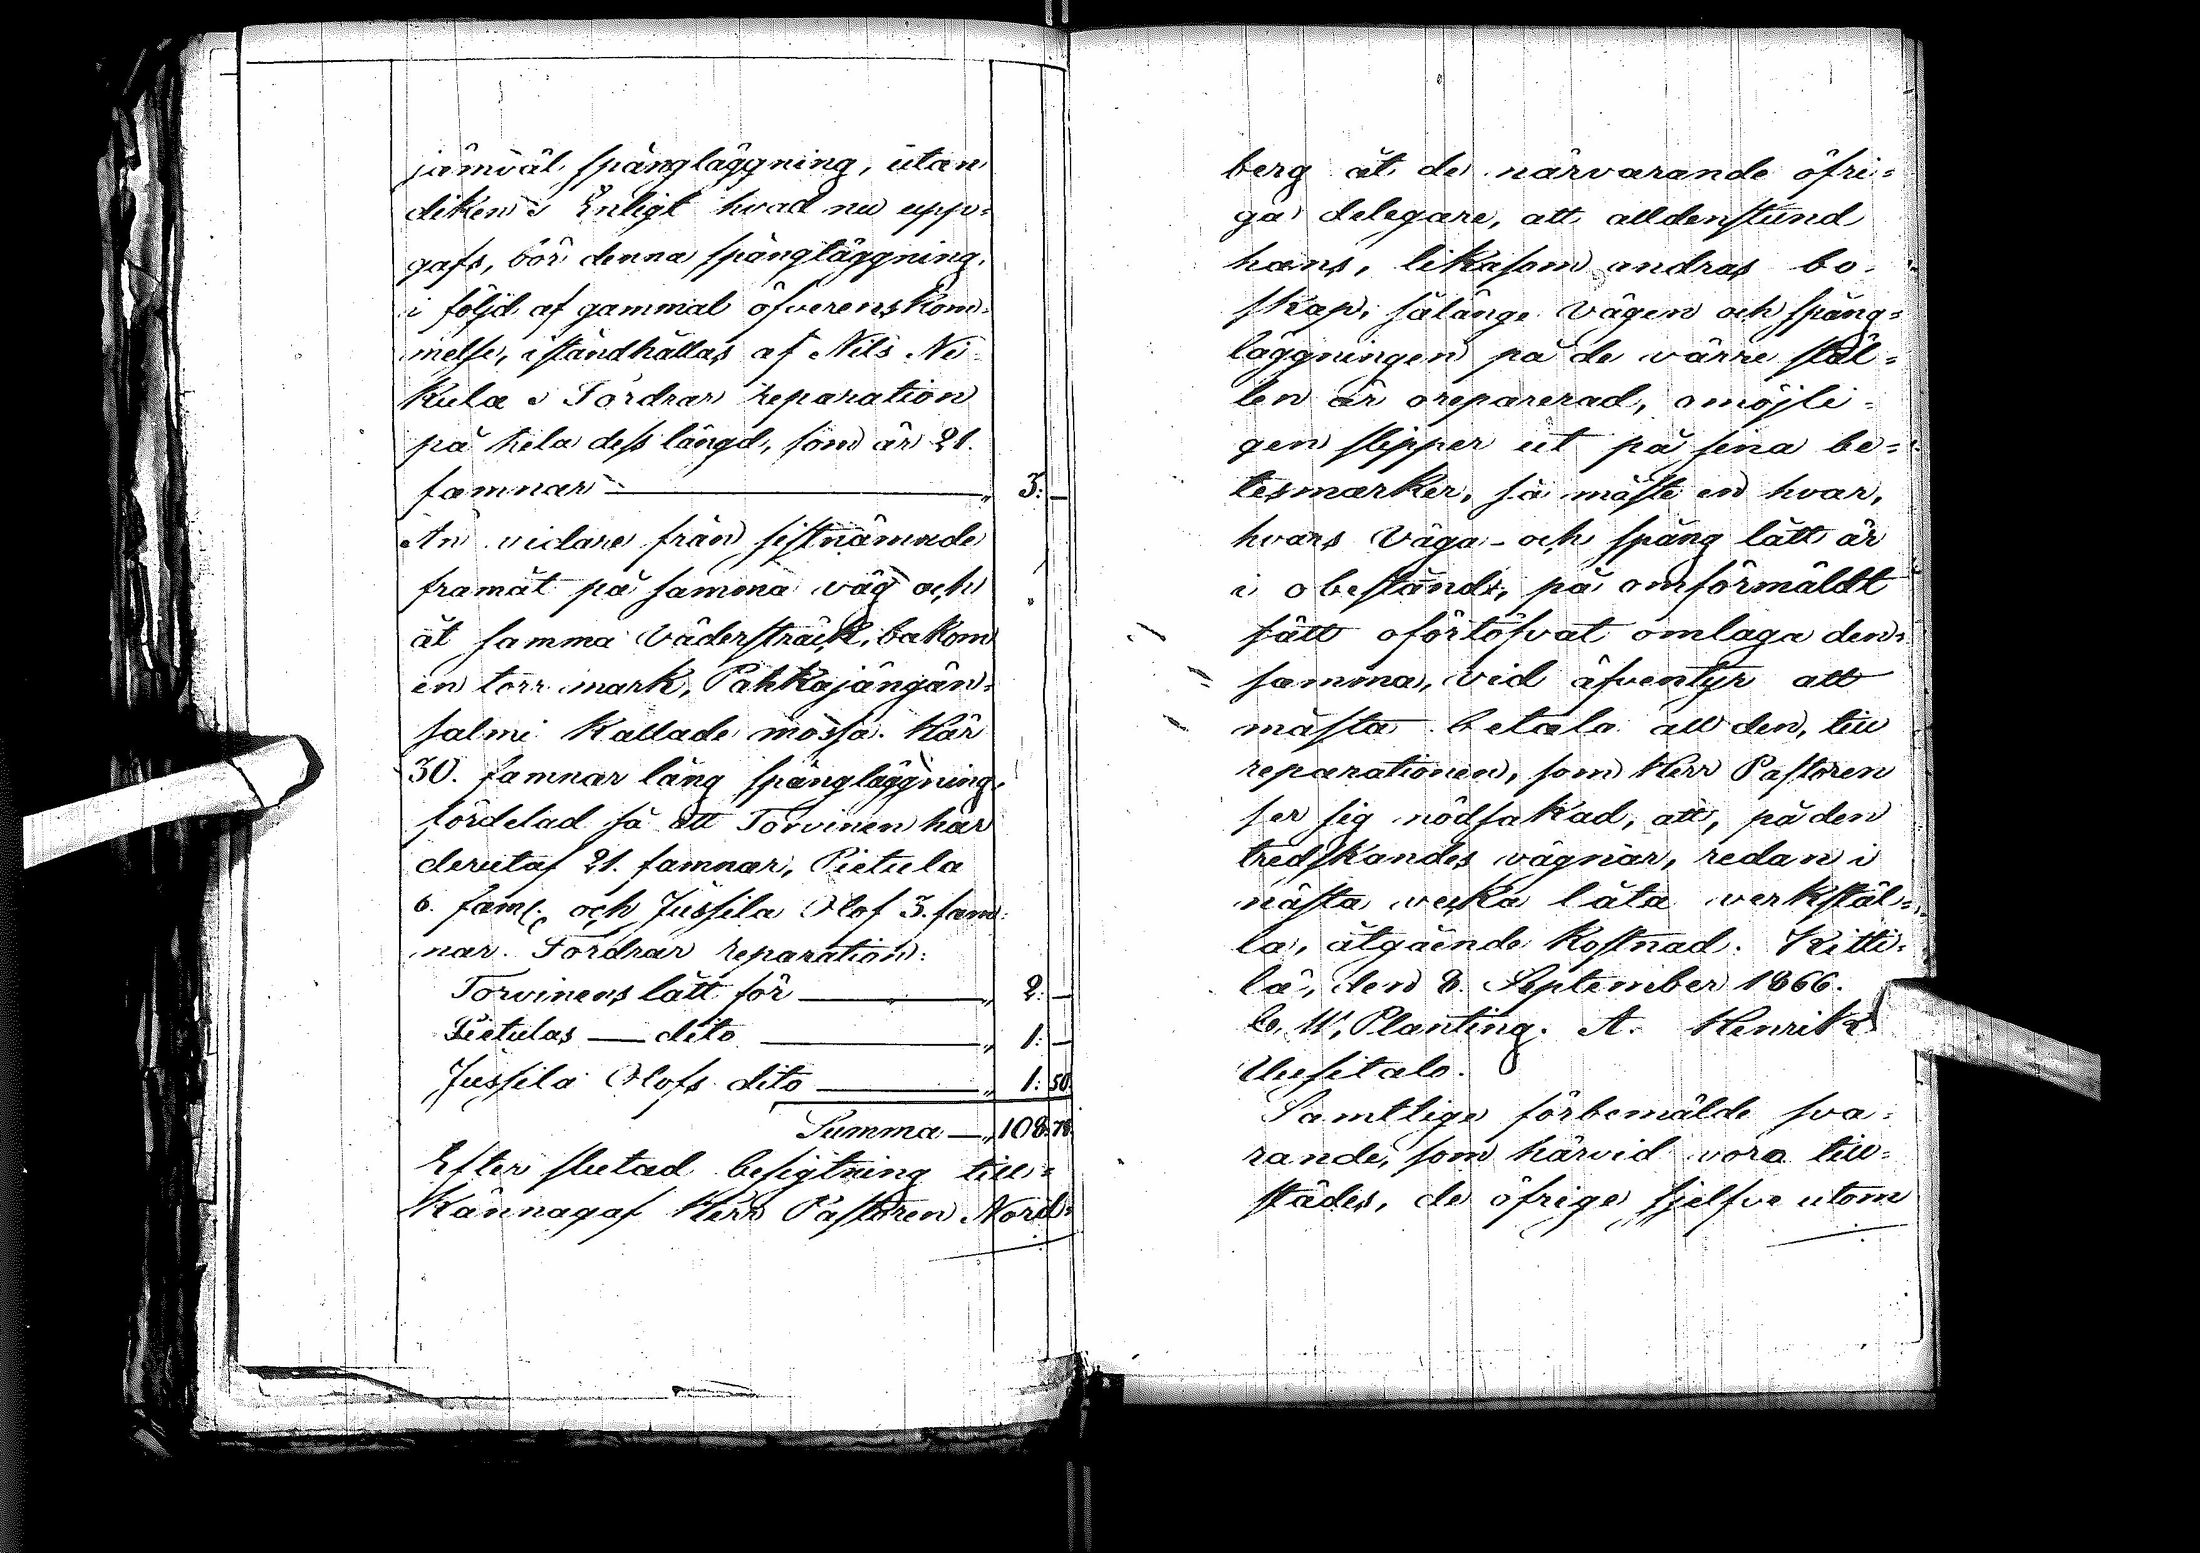 jämväl spångläggning, utan
diken. Enligt hvad nu upp-
gafs, bör denna spångläggning,
i följd af gammal öfverenskom-
melse, iståndhållas af Nils Ni-
kula. Fordrar reparation
på hela dess längd, som är 21.
famnar — " 3: —
Än vidare från sistnämnde
framåt på samma väg och
åt samma vädersträck, bakom
en torr mark, Pahkajängän-
salmi kallade mossa. Här
30. famnar lång spångläggning,
fördelad så att Torvinen har
derutaf 21. famnar, Pietula
6. faml. och Jussila Olof 3. fam-
nar. Fordrar reparation:
Torvinens lått för — " 2: —
Pietulas — dito — " 1: —
Jussila Olofs dito — " 1: 50.
Summa — " 108: 78.
Efter slutad besigtning till-
kännagaf Herr Pastoren Nord-
berg åt de närvarande öfri-
ga delegare, att alldenstund
hans, likasom andras bo-
skap, sålänge vägen och spång-
läggningen på de värre stäl-
len är oreparerad, omöjli-
gen slipper ut på sina be-
tesmarker, så måste en hvar,
hvars väga- och spång lått är
i obestånd, på omförmäldt
sätt oförtöfvat omlaga den-
samma, vid äfventyr att
måsta betala all den, till
reparationen, som Herr Pastoren
ser sig nödsakad, att, på den
tredskandes vägnar, redan i
nästa veka låta verkstäl-
la, åtgående kostnad. Kitti-
lä, den 8. September 1866.
C. W. Planting. A. Henrik
Uusitalo.
Samtlige förbemälde sva-
rande, som härvid voro till-
städes, de öfrige sjelfve utom